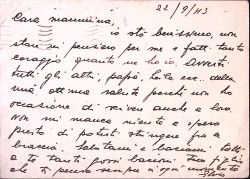 22/9/43
Cara mammina,
io sto benissimo, non
stare in pensiero per me e fatti tanto
coraggio quanto ne ho io. Avverti
tutti gli altri, papà, Lola ecc. della
mia ottima salute perché non ho
occasione di scrivere anche a loro.
Non mi manca niente e spero
presto di poterti stringere fra le
braccia. Salutami e baciami tutti
a te tanti grossi bacioni. Tuo figlio
che ti pensa sempre in ogni momento